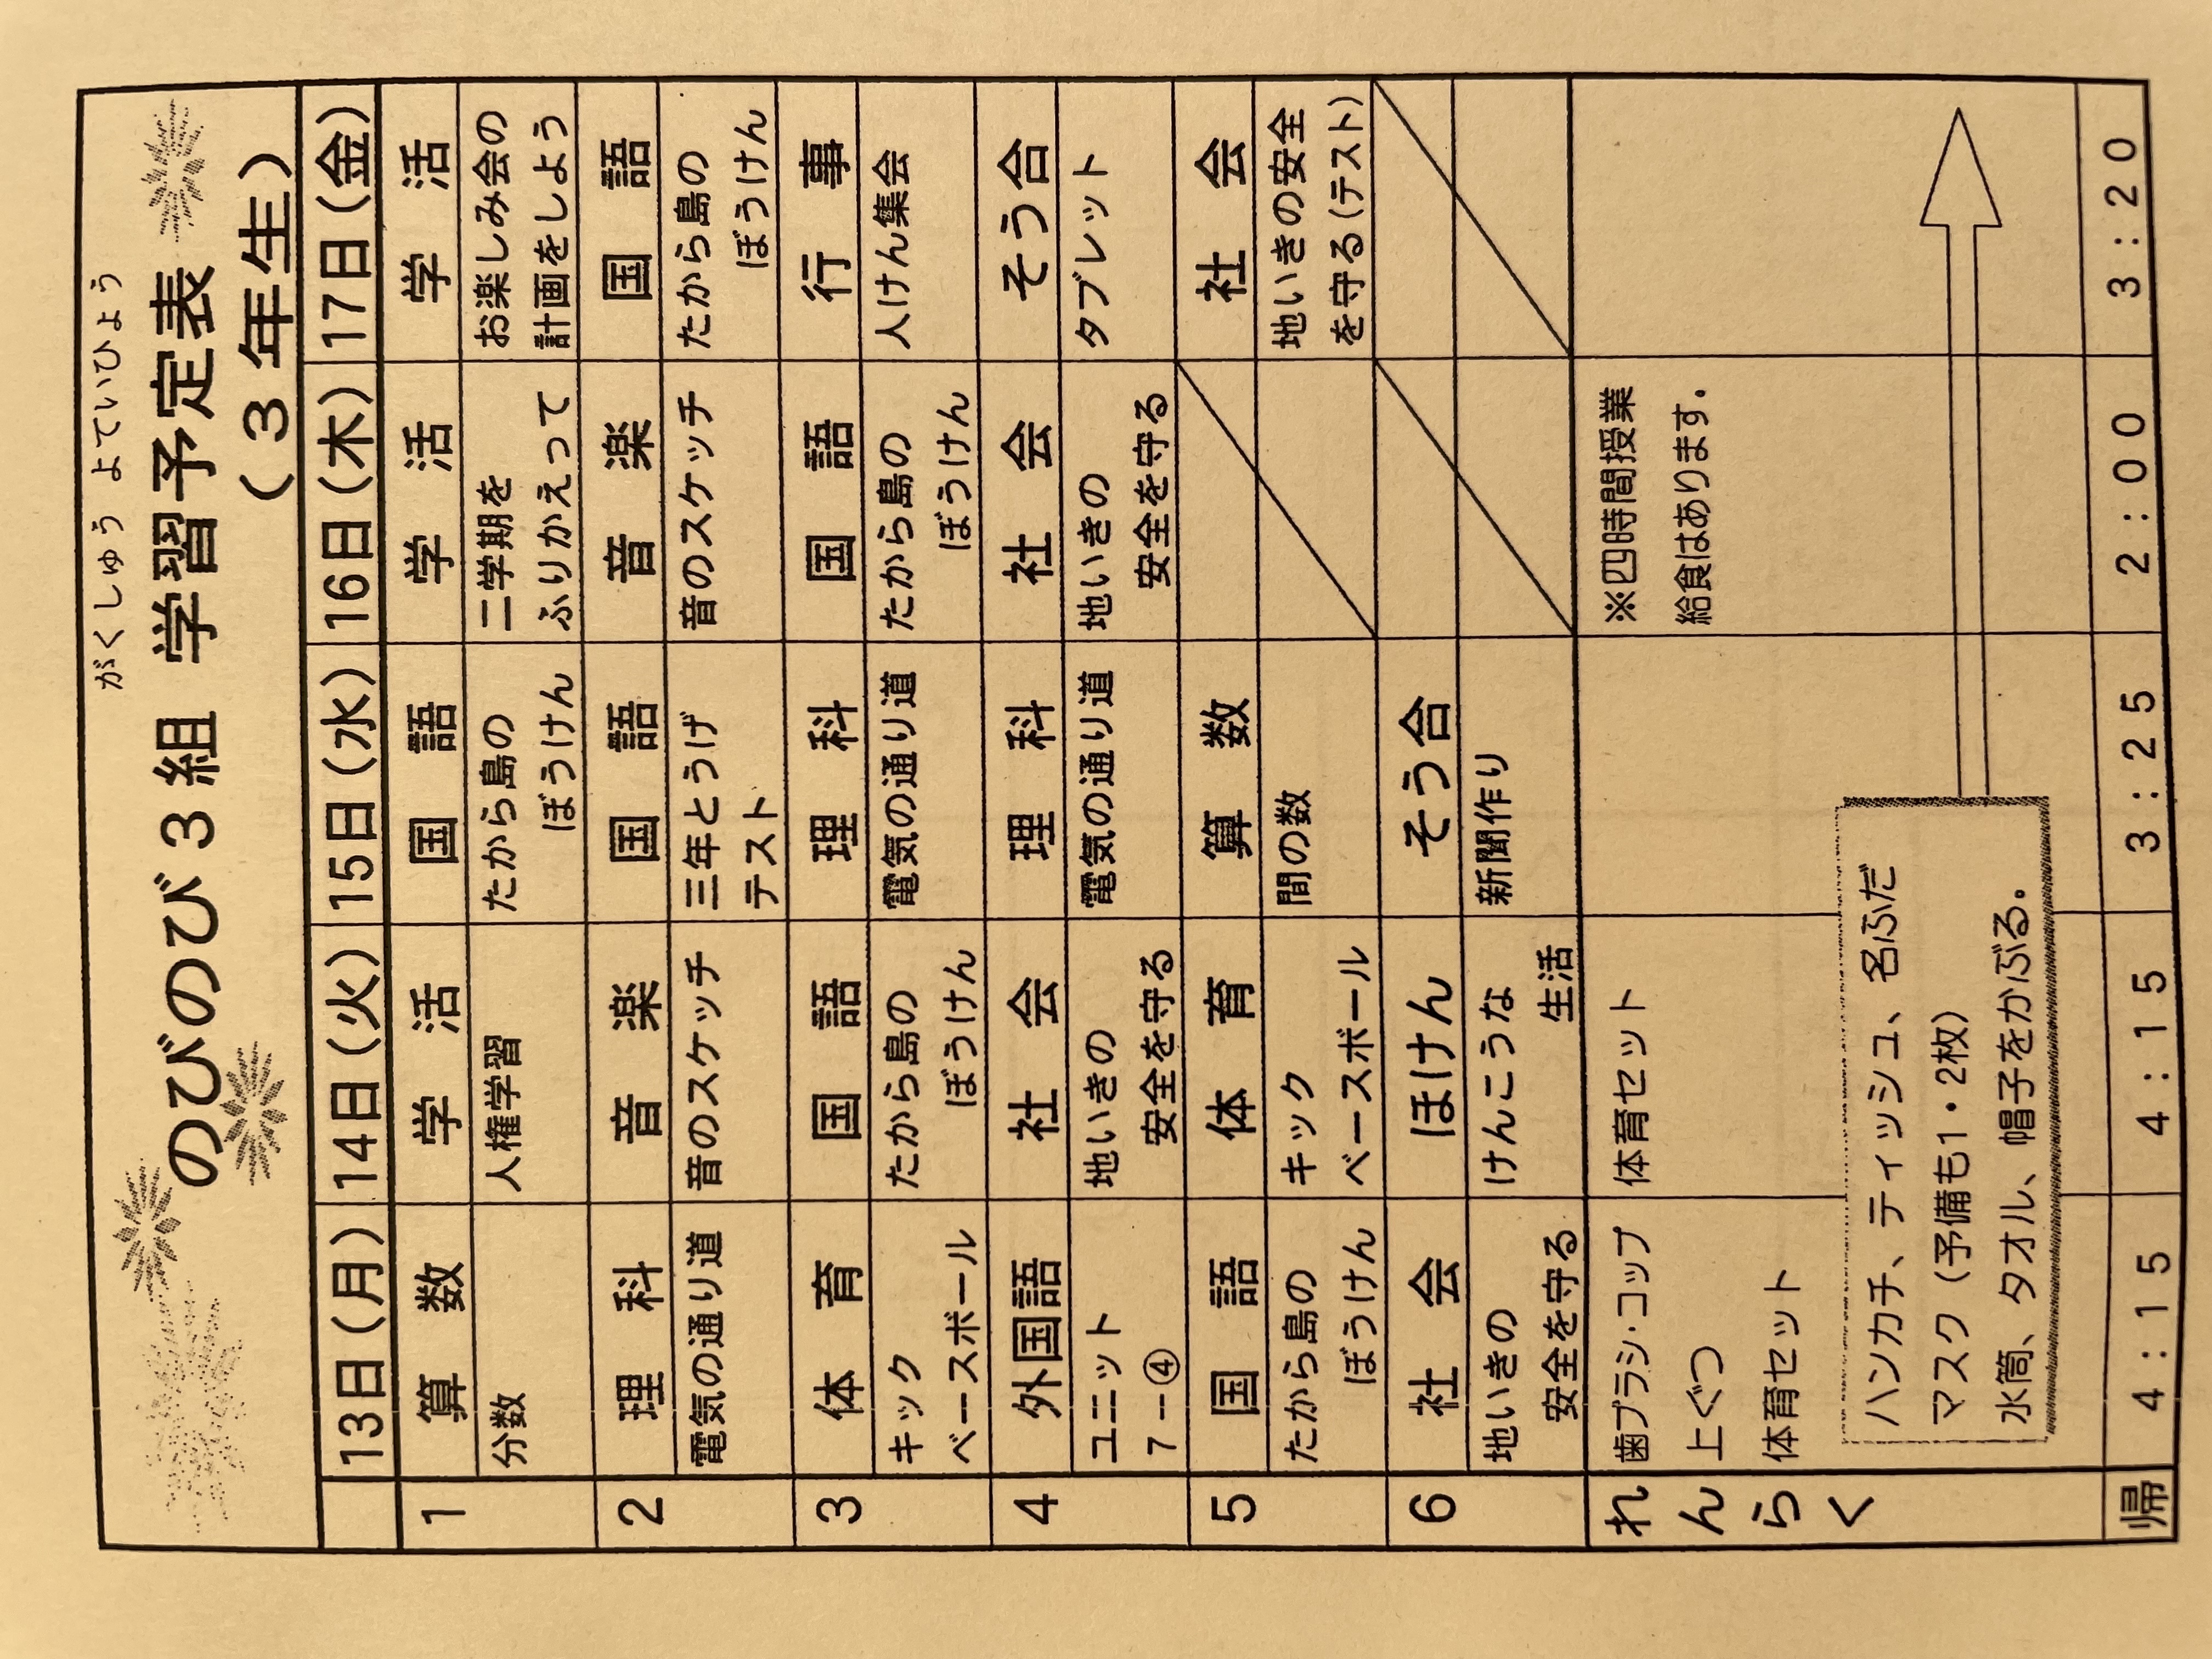 がくしゅう よていひょう
のびのび３組 学習予定表
（３年生）
13日(月) 14日(火) 15日(水) 16日(木) 17日(金)
1 算数 学活 国語 学活 学活
分数 人権学習 たから島の 二学期を お楽しみ会の
ぼうけん ふりかえって 計画をしよう
2 理科 音楽 国語 音楽 国語
電気の通り道 音のスケッチ 三年とうげ 音のスケッチ たから島の
テスト ぼうけん
3 体育 国語 理科 国語 行事
キック たから島の 電気の通り道 たから島の 人けん集会
ベースボール ぼうけん ぼうけん
4 外国語 社会 理科 社会 そう合
ユニット 地いきの 電気の通り道 地いきの タブレット
7－④ 安全を守る 安全を守る
5 国語 体育 算数 社会
たから島の キック 間の数 地いきの安全
ぼうけん ベースボール を守る(テスト)
6 社会 ほけん そう合
地いきの けんこうな 新聞作り
安全を守る 生活
れんらく
歯ブラシ・コップ 体育セット ※四時間授業
上ぐつ 給食はあります.
体育セット
ハンカチ、ティッシュ、名ふだ
マスク（予備も1・2枚）
水筒、タオル、帽子をかぶる.
帰 4:15 4:15 3:25 2:00 3:20